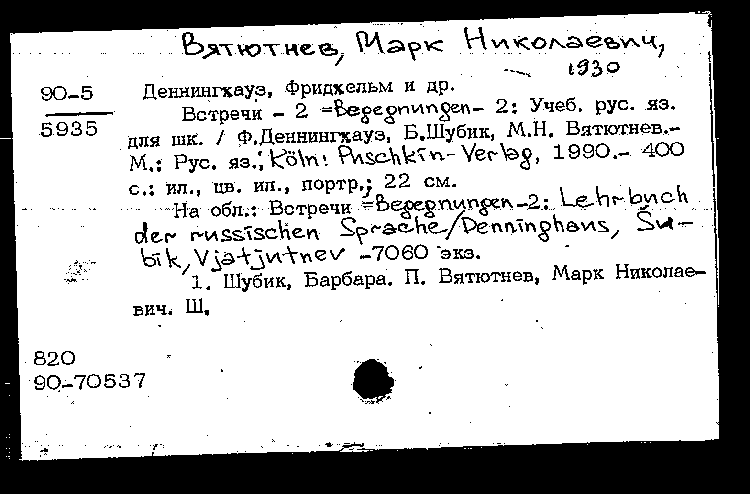 Вятютнев, Марк Николаевич,
1930
90-5
5935
Деннингхауз, Фридхельм и др.
Встречи - 2 =Begegnungen- 2: Учеб. рус. яз.
для шк. / Ф.Деннингхауз, Б.Шубик, М.Н. Вятютнев.-
М.: Рус. яз.; Köln: Puschkin-Verlag, 1990.- 400
с.: ил., цв. ил., портр.; 22 см.
На обл.: Встречи =Begegnungen-2: Lehrbuch
der russischen Sprache/Denninghaus, Šu-
bik, Vjatjutnev -7060 экз.
1. Шубик, Барбара. П. Вятютнев, Марк Николае-
вич. Ш.
820
90-70537